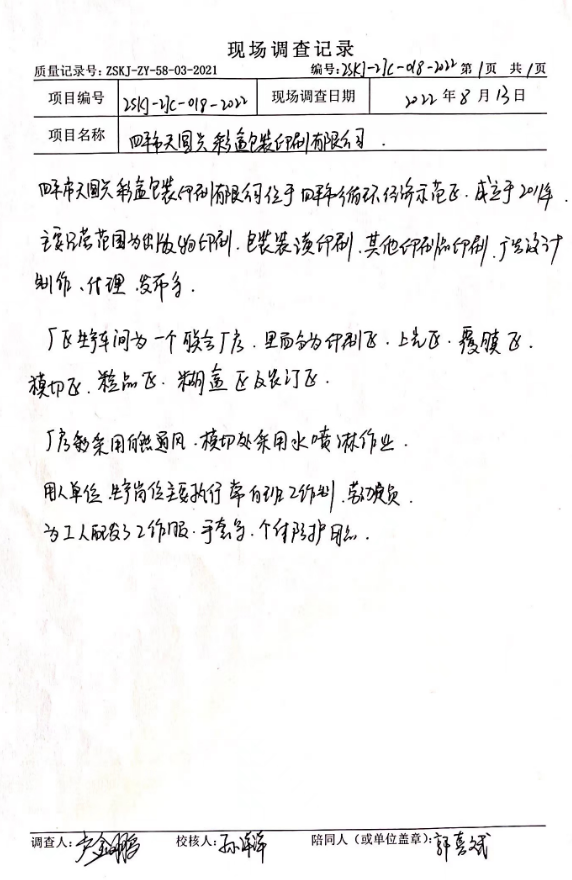 现场调查记录
质量记录号: ZSKJ-ZY-58-03-2021 编号: ZSKJ-ZJC-018-2022 第 1 页 共 1 页
项目编号 ZSKJ-ZJC-018-2022 现场调查日期 2022 年 8 月 13 日
项目名称 四平市天圆光彩盒包装印刷有限公司.
四平市天圆光彩盒包装印刷有限公司位于四平市循环经济示范区. 成立于2011年.
主要经营范围为出版物印刷、包装装潢印刷、其他印刷品印刷、广告设计
制作、代理、发布等.
厂区生产车间为一个联合厂房. 里面分为印刷区、上光区、覆膜区、
模切区、粒品区、糊盒区及装订区.
厂房多采用自然通风. 模切处采用水喷淋作业.
用人单位生产岗位主要执行常白班工作制、劳动定员.
为工人配发了工作服、手套等、个体防护用品.
调查人: 卢金鹏 校核人: 孙洋洋 陪同人(或单位盖章): 郭喜斌